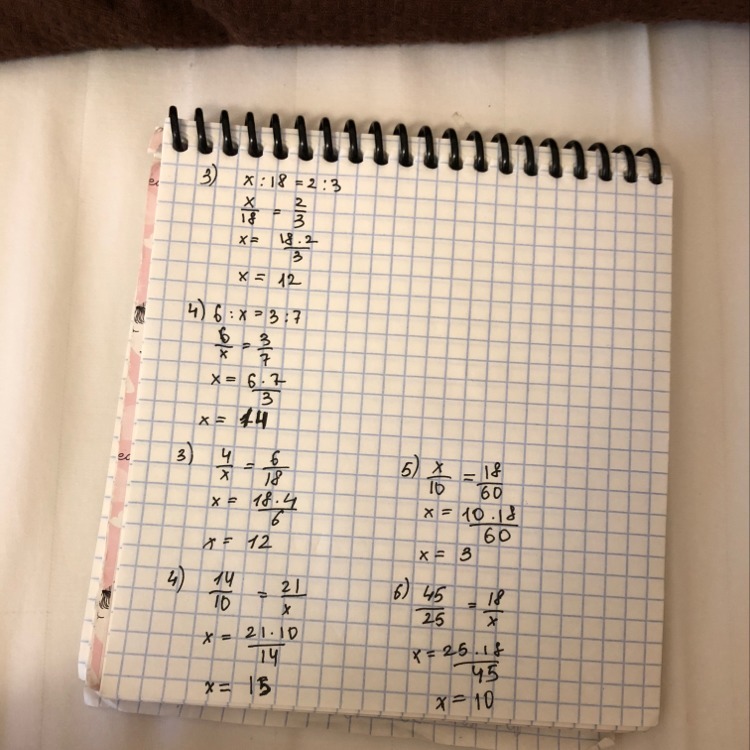 3) x : 18 = 2 : 3
x/18 = 2/3
x = 18 · 2/3
x = 12
4) 6 : x = 3 : 7
6/x = 3/7
x = 6 · 7/3
x = 14
3) 4/x = 6/18
x = 18 · 4/6
x = 12
4) 14/10 = 21/x
x = 21 · 10/14
x = 15
5) x/10 = 18/60
x = 10 · 18/60
x = 3
6) 45/25 = 18/x
x = 25 · 18/45
x = 10